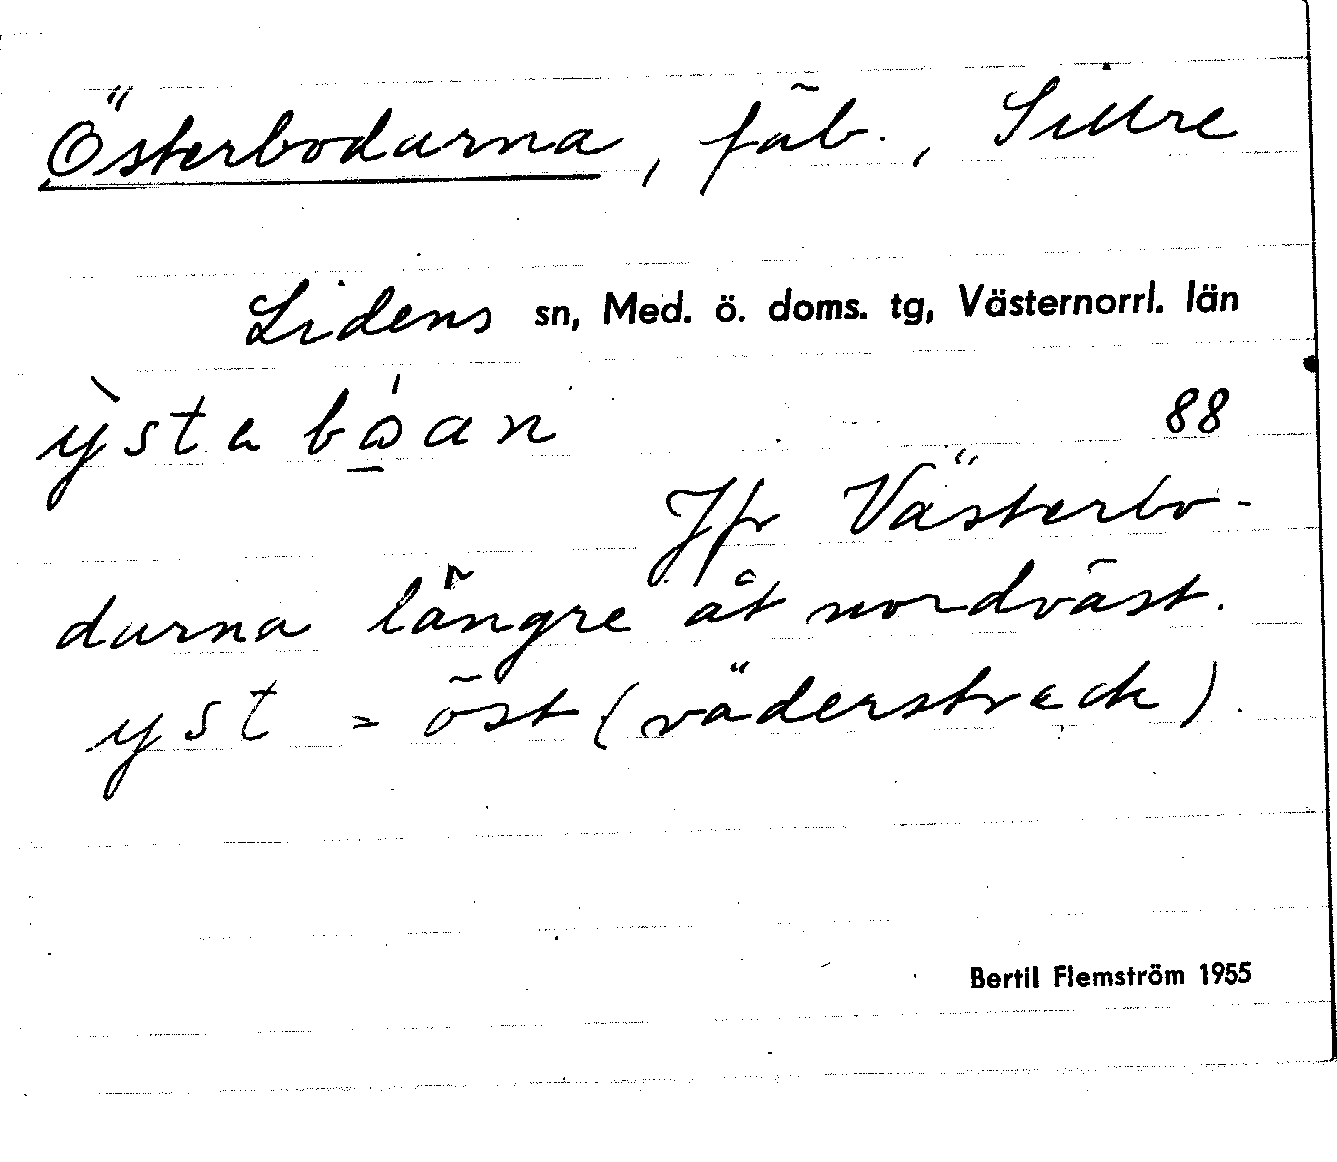 Österbodarna, fäb., Sillre
Lidens sn, Med. ö. doms. tg, Västernorrl. län
ỳsta bóan 88
Jfr Västerbo-
darna längre åt nordväst.
yst = öst (väderstreck).
Bertil Flemström 1955